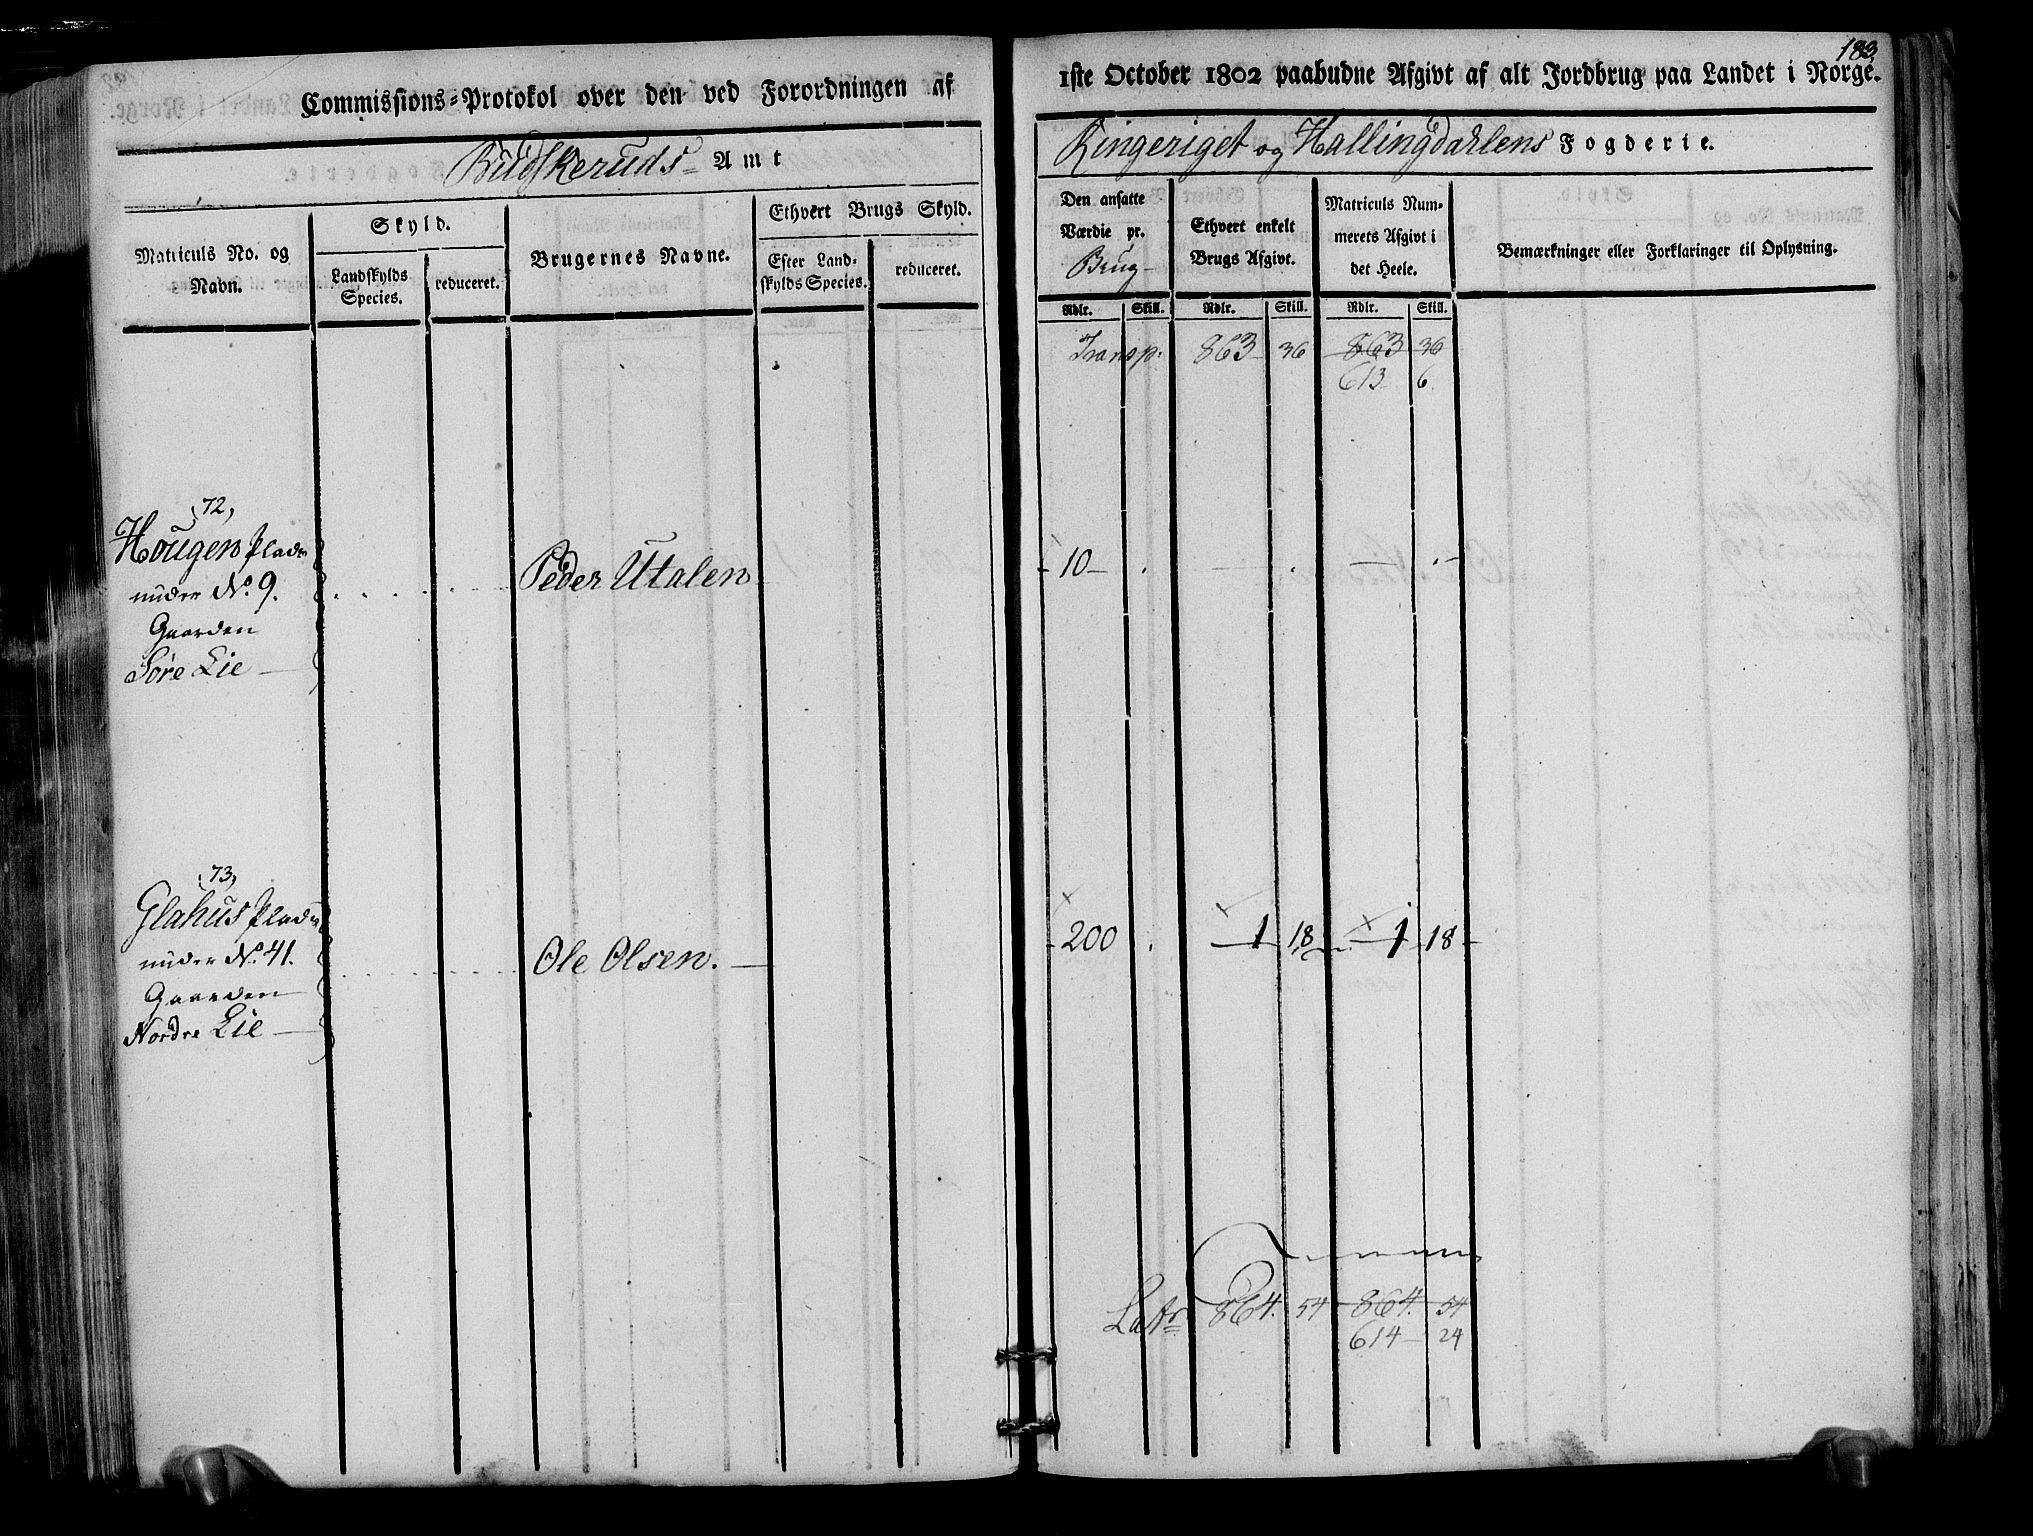 Commissions-Protokol over den ved Forordningen af
Budskeruds- Amt
Matriculs No. og
Navn.
Skyld.
Landskylds
Species.
reduceret.
Brugernes Navne.
Ethvert Brugs Skyld.
Efter Land-
skylds Species.
reduceret.
72,
Hougen Plads
under No. 9.
Gaarden
Søre Lie
Peder Utalen
73,
Glahus Plads
under No. 41.
Gaarden
Nordre Lie
Ole Olsen.
183
1ste October 1802 paabudne Afgivt af alt Jordbrug paa Landet i Norge.
Ringeriget og Hallingdahlens Fogderie.
Den ansatte
Værdie pr.
Brug
Ethvert enkelt
Brugs Afgivt.
Matriculs Num-
merets Afgivt i
det Heele.
Bemærkninger eller Forklaringer til Oplysning.
Rdlr. Skill. Rdlr. Skill. Rdlr. Skill.
Transp: 863 36 863 36
613 6.
10
200 1 18 1 18
Latr 864. 54 864. 54
614 24